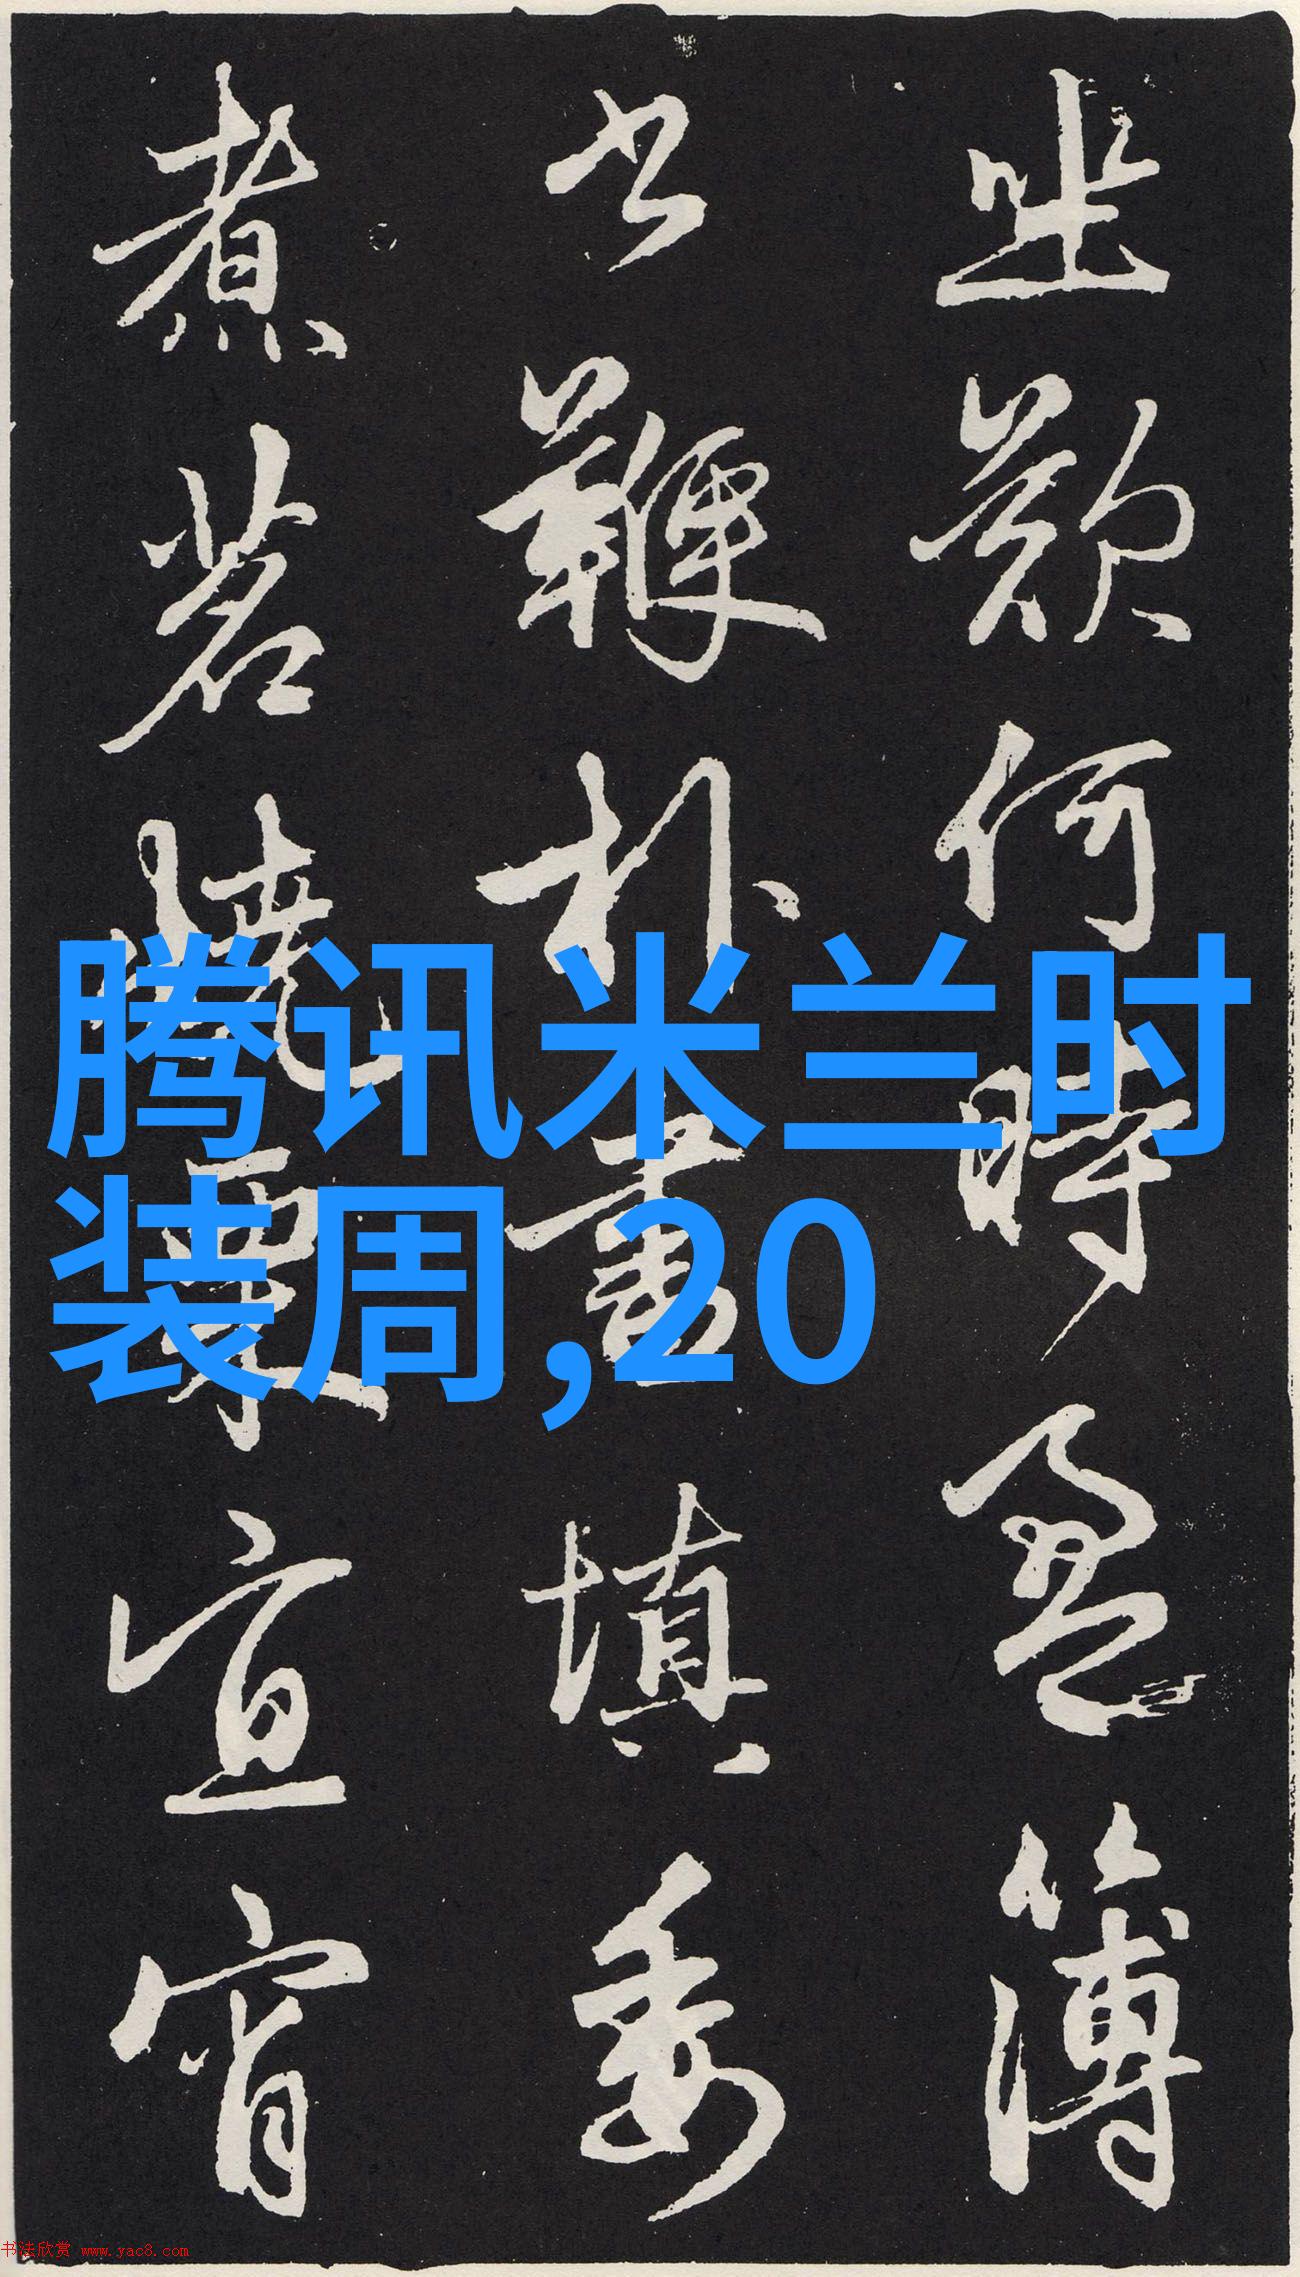 坐歎何時盈簿
書鞭扑晝填委
煮茗燒栗宜宵
腾讯米兰时
装周,20
书法欣赏 www.yac8.com